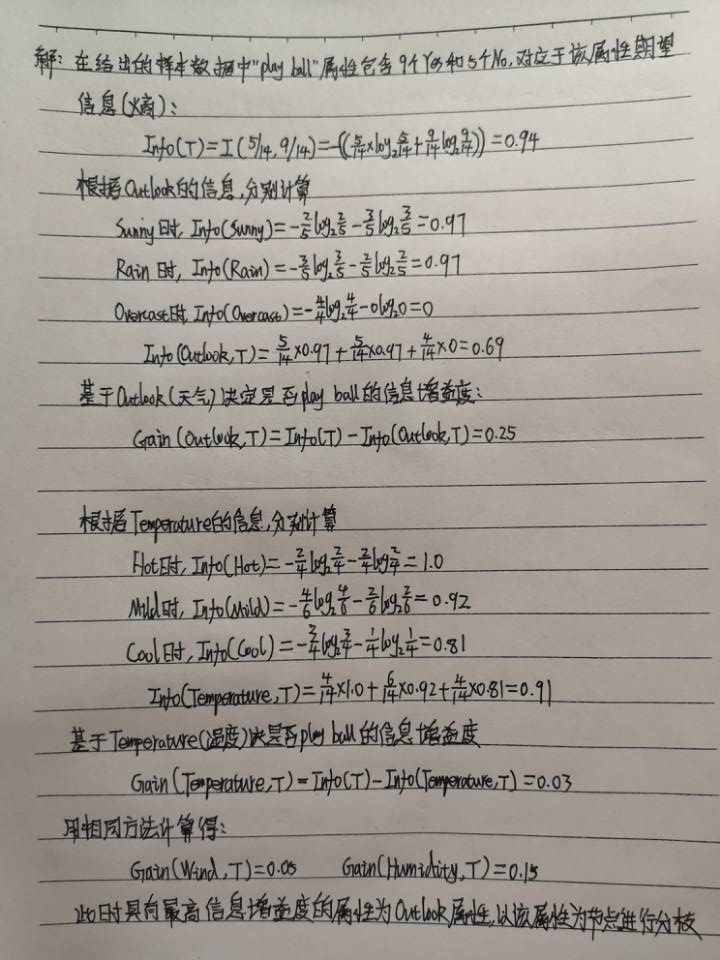 解：在给出的样本数据中"play ball"属性包含9个Yes和5个No,对应于该属性期望
信息(熵)：
Info(T)=I(5/14,9/14)=-((5/14×log₂5/14+9/14log₂9/14))=0.94
根据Outlook的信息,分别计算
Sunny时,Info(Sunny)=-2/5log₂2/5-3/5log₂3/5=0.97
Rain时,Info(Rain)=-3/5log₂3/5-2/5log₂2/5=0.97
Overcast时,Info(Overcast)=-4/4log₂4/4-0log₂0=0
Info(Outlook,T)=5/14×0.97+5/14×0.97+4/14×0=0.69
基于Outlook(天气)决定是否play ball的信息增益度：
Gain(Outlook,T)=Info(T)-Info(Outlook,T)=0.25
根据Temperature的信息,分别计算
Hot时,Info(Hot)=-2/4log₂2/4-2/4log2/4=1.0
Mild时,Info(Mild)=-4/6log₂4/6-2/6log₂2/6=0.92
Cool时,Info(Cool)=-3/4log₂3/4-1/4log₂1/4=0.81
Info(Temperature,T)=4/14×1.0+6/14×0.92+4/14×0.81=0.91
基于Temperature(湿度)决是否play ball的信息增益度
Gain(Temperature,T)=Info(T)-Info(Temperature,T)=0.03
用相同方法计算得：
Gain(Wind,T)=0.05 Gain(Humidity,T)=0.15
此时具有最高信息增益度的属性为Outlook属性,以该属性为节点进行分枝